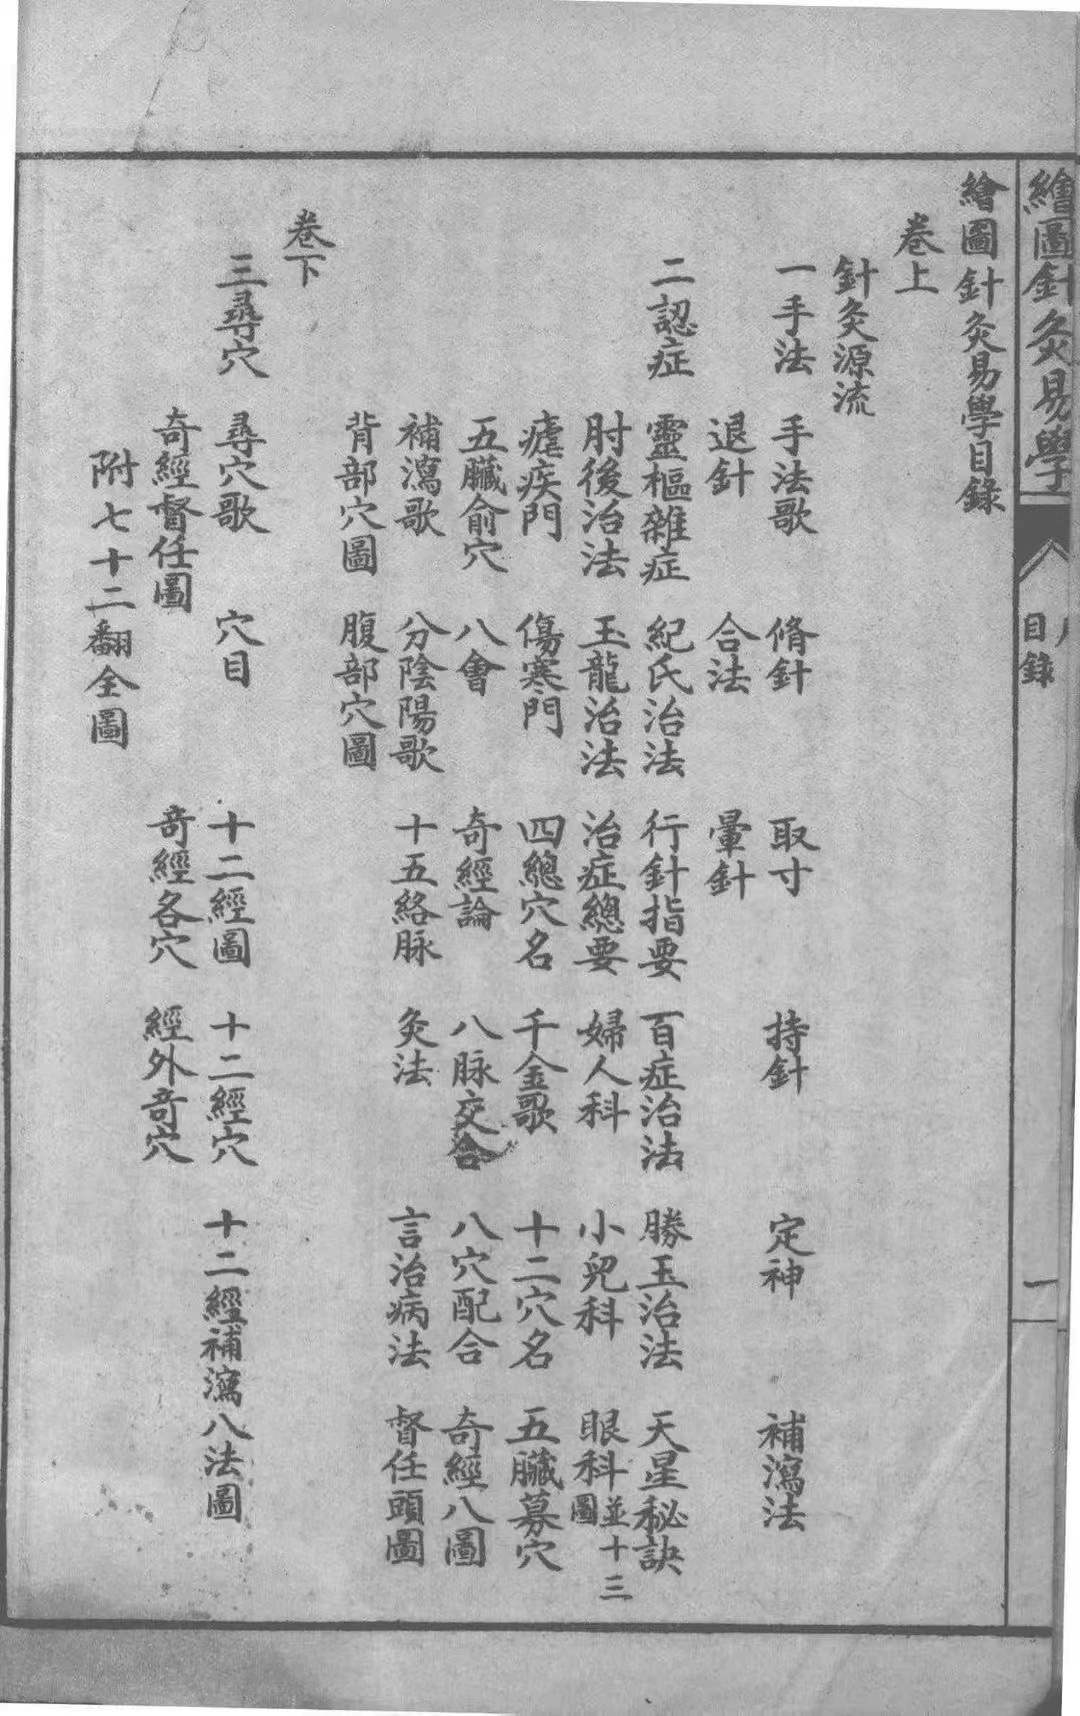 繪圖針灸易學
目錄
一
繪圖針灸易學目錄
卷上
針灸源流
一手法 手法歌 脩針 取寸 持針 定神 補瀉法
退針 合法 暈針
二認症 靈樞雜症 紀氏治法 行針指要 百症治法 勝玉治法 天星秘訣
肘後治法 玉龍治法 治症總要 婦人科 小兒科 眼科並十三圖
瘧疾門 傷寒門 四總穴名 千金歌 十二穴名 五臟募穴
五臟俞穴 八會 奇經論 八脉交會 八穴配合 奇經八圖
補瀉歌 分陰陽歌 十五絡脉 灸法 言治病法 督任頭圖
背部穴圖 腹部穴圖
卷下
三尋穴 尋穴歌 穴目 十二經圖 十二經穴 十二經補瀉八法圖
奇經督任圖 奇經各穴 經外奇穴
附七十二翻全圖